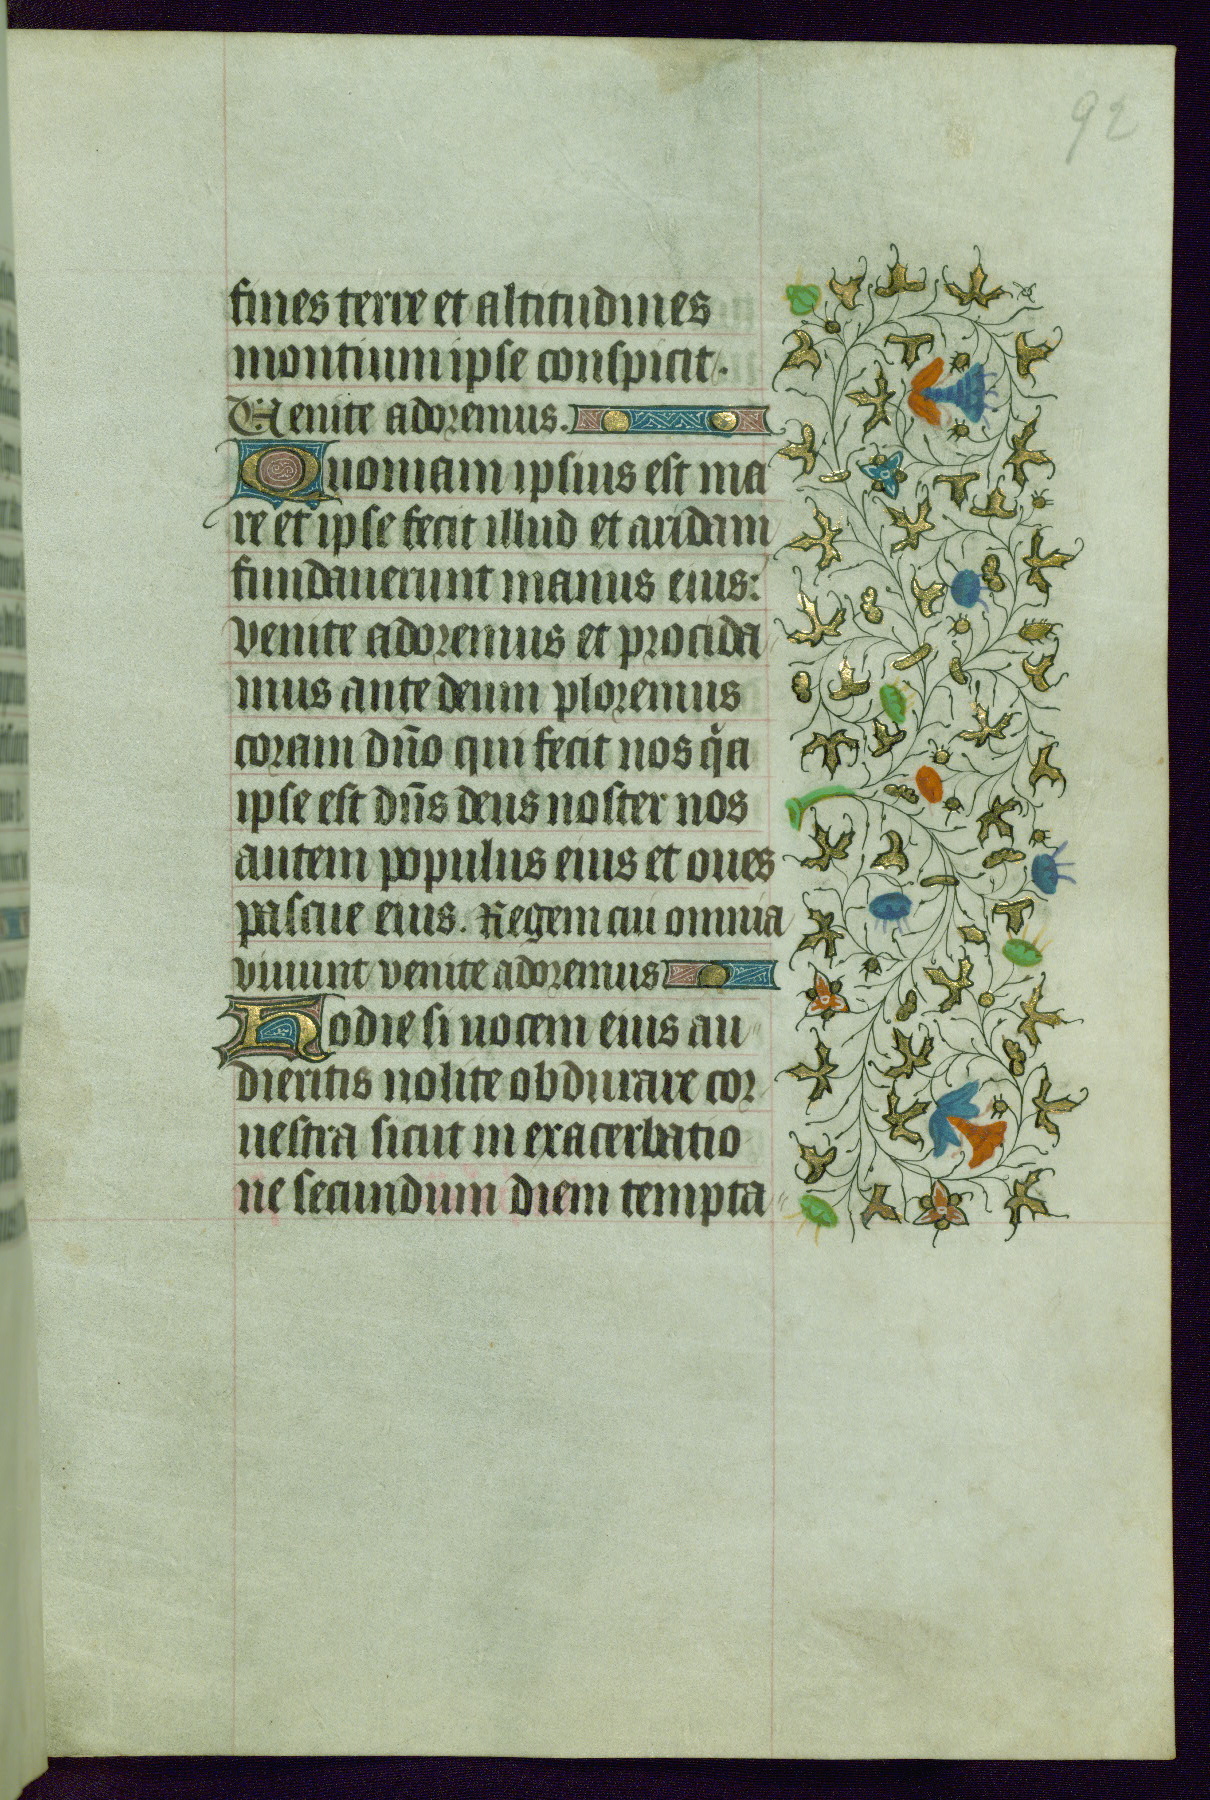 92
fines terre et altitudines
montium ipse conspicit.
Venite adoremus.
Quoniam ipsius est ma
re et ipse fecit illud et aridam
fundauerunt manus eius:
venite adoremus et procida
mus ante deum ploremus
coram dño qui fecit nos q̇a
ipse est dñs deus noster nos
autem populus eius et oues
pascue eius. Regem cui omnia
viuunt venite adoremus
Hodie si uocem eius au
dieritis nolite obdurare cor
uestra sicut in exacerbatio
ne secundum diem tempta